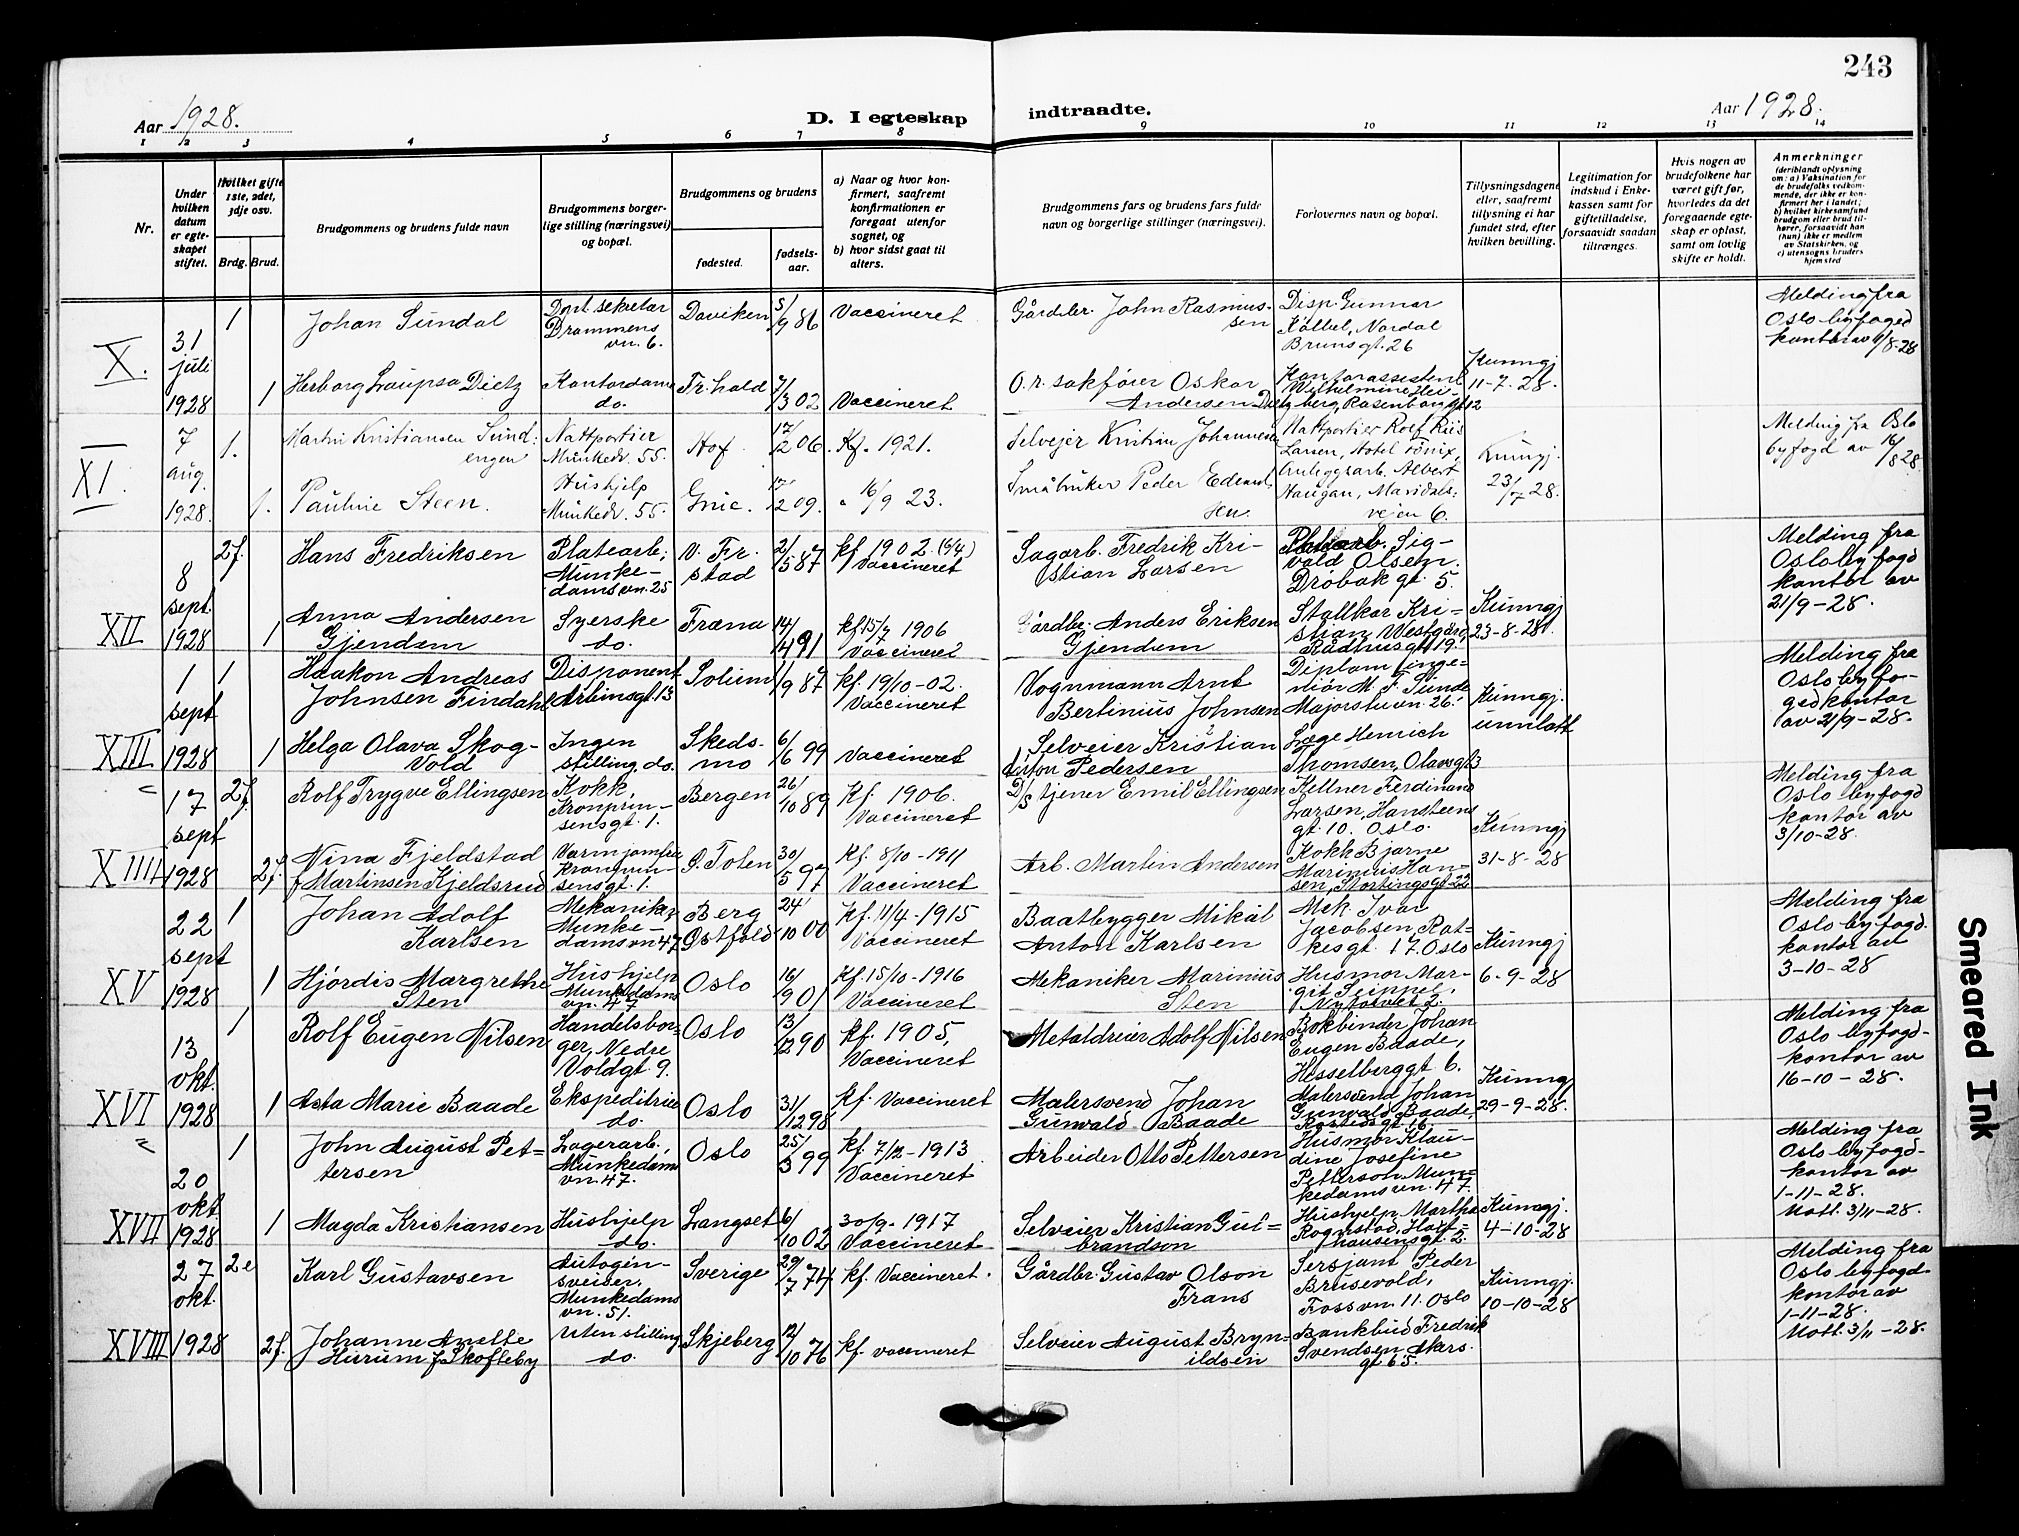 243
Aar 1928.
D. I egteskap indtraadte.
Aar 1928.
1 2 3 4 5 6 7 8 9 10 11 12 13 14
Nr.
Under hvilken datum er egteskapet stiftet.
Hvilket gifte 1ste, 2det, 3dje osv.
Brdg. Brud.
Brudgommens og brudens fulde navn
Brudgommens borgerlige stilling (næringsvei) og bopæl.
Brudgommens og brudens
fødested.
fødselsaar.
a) Naar og hvor konfirmert, saafremt konfirmationen er foregaat utenfor sognet, og
b) hvor sidst gaat til alters.
Brudgommens fars og brudens fars fulde navn og borgerlige stillinger (næringsvei).
Forlovernes navn og bopæl.
Tillysningsdagene eller, saafremt tillysning ei har fundet sted, efter hvilken bevilling.
Legitimation for indskud i Enkekassen samt for giftetilladelse, forsaavidt saadan tiltrænges.
Hvis nogen av brudefolkene har været gift før, hvorledes da det foregaaende egteskap er opløst, samt om lovlig skifte er holdt.
Anmerkninger
(deriblandt oplysning om: a) Vaksination for de brudefolks vedkommende, der ikke er konfirmert her i landet;
b) hvilket kirkesamfund brudgom eller brud tilhører, forsaavidt han (hun) ikke er medlem av Statskirken, og
c) utensogns bruders hjemsted
X. 31 juli 1928
1 Johan Sundal
Dept. sekretær Drammens vn. 6.
Daviken 5/9 86 Vaccineret
Gårdbr. John Rasmussen
Disp. Gunnar Kølbel, Nordal Brunsgt. 26
Melding fra Oslo byfoged kontor av 4/8-28
1 Herborg Laupsa Dietz
Kontordame do.
Fr.hald 7/3 02 Vaccineret
O.r. sakfører Oskar Andersen Dietz
Kontorassistent Wilhelmine Heiberg, Rosenborggt. 12
Kunngj 11-7-28.
XI. 7 aug. 1928.
1. Martin Kristiansen Sundengen
Nattportier Munkedv. 55.
Hof 12/2 06. Kf. 1921.
Selveier Kristian Johannesen
Nattportier Rolf Riis Larsen, Hotel Fønix,
Melding fra Oslo byfogd av 16/8 28.
1. Pauline Steen.
Hushjelp Munkedv. 55.
Grue. 12/2 09. " 16/9 23.
Småbruker Peder Edvardsen.
Anleggsarb. Albert Haugan, Maridalsveien 6.
Kunngj. 23/7 28.
XII 8 sept. 1928
2f. Hans Fredriksen
Platearb., Munkedamsvn. 25
V. Fr.stad 2/5 87 kf 1902. (6/4) Vaccineret
Sagarb. Fredrik Kristian Larsen
Platearb. Sigvald Olsen. Drøbak gt. 5.
Melding fra Oslo byfogd kontor av 21/9-28.
1 Anna Andersen Gjendem
Syerske do.
Fræna 14/4 91 kf 15/7 1906 Vaccineret
Gårdbr. Anders Eriksen Gjendem
Stallkar Kristian Westgård Rådhusgt 19.
Kunngj 23-8-28.
XIII 1 sept 1928
1 Haakon Andreas Johnsen Findahl
Disponent Arbinsgt. 13
Solum 1/9 87 kf. 19/10-02. Vaccineret
Vognmann Arnt Bertinius Johnsen
Diplom ingeniør M. F. Sunde Majorstuvn. 26.
Kunngj. unnlatt
Melding fra Oslo byfogedkontor av 21/9-28.
1 Helga Olava Skogvold
Ingen stilling, do.
Skedsmo 6/6 99 Vaccineret
Selveier Kristian Anton Pedersen
Læge Henrich Thomsen, Olavsgt 3
XIIII 17 sept 1928
2f. Rolf Trygve Ellingsen
Kokk, Kronprinsensgt. 1.
Bergen 26/10 89 Kf. 1906. Vaccineret
D/s tjener Emil Ellingsen
Kellner Ferdinand Larsen, Hansteens gt. 10. Oslo.
Melding fra Oslo byfogd kontor av 3/10-28.
2f. Nina Fjeldstad f Martinsen Kjeldsrud
Varmjomfru Kronprinsensgt. 1.
Ø. Toten 30/5 97 Kf. 8/10-1911 Vaccineret
Arb. Martin Andersen
Kokk Bjarne Marinius Hansen, Stortingsgt 22
Kunngj 31-8-28
XV 22 sept 1928
1 Johan Adolf Karlsen
Mekaniker Munkedamsvn 47
Berg Østfold 24/10 00 Kf. 11/4-1915 Vaccineret
Baatbygger Mikal Anton Karlsen
Mek. Ivar Jacobsen, Ratkesgt. 17. Oslo
Melding fra Oslo byfogd. kontor av 3-10-28
1 Hjørdis Margrethe Sten
Hushjelp Munkedams vn. 47
Oslo 16/9 01 Kf. 15/10-1916 Vaccineret
Mekaniker Marinius Sten
Husmor Margit Seippel, Nytorvet 2.
Kunngj 6-9-28
XVI 13 okt. 1928
1 Rolf Eugen Nilsen
Handelsborger, Nedre Voldgt. 9.
Oslo 13/12 90 kf. 1905, Vaccineret
Metaldreier Adolf Nilsen
Bokbinder Johan Eugen Baade, Hesselberggt 6.
Melding fra Oslo byfogdkontor av 16-10-28.
1 Asta Marie Baade
Ekspeditrice do.
Oslo 31/12 98 kf. Vaccineret
Malersvend Johan Gunvald Baade
Malersvend Johan Gunvald Baade,
Kunngj 29-9-28.
XVII 20 okt 1928
1 John August Pettersen
Lagerarb. Munkedams vn. 47.
Oslo 25/3 99 kf. 7/12-1913 Vaccineret
Arbeider Otto Pettersen
Husmor Klaudine Josefine Petterson Munkedamsvn. 47.
Melding fra Oslo byfogdkontor av 1-11-28. Mott. 3/11-28.
1 Magda Kristiansen
Hushjelp do.
Langset 6/10 02 30/9-1917 Vaccineret
Selveier Kristian Gulbrandson
Hushjelp Martha Rognstad, Holthausensgt. 2.
Kunngj. 4-10-28
XVIII 27 okt. 1928
2e Karl Gustavsen
Autogensveiser, Munkedams vn. 51.
Sverige 29/7 74 kf. Vaccineret.
Gårdbr. Gustav Olson Frans
Sersjant Peder Brusevold, Fossvn. 11. Oslo
Kunngj. 10-10-28
Melding fra Oslo byfogdkontor av 1-11-28. Mott. 3/11-28.
2f. Johanne Anette Hurum f Skofteby
Uten stilling do.
Skjeberg 12/10 76 kf. vaccineret
Selveier August Brynildsen
Bankbud Fredrik Svendsen Akers. gt 65.
Smeared Ink